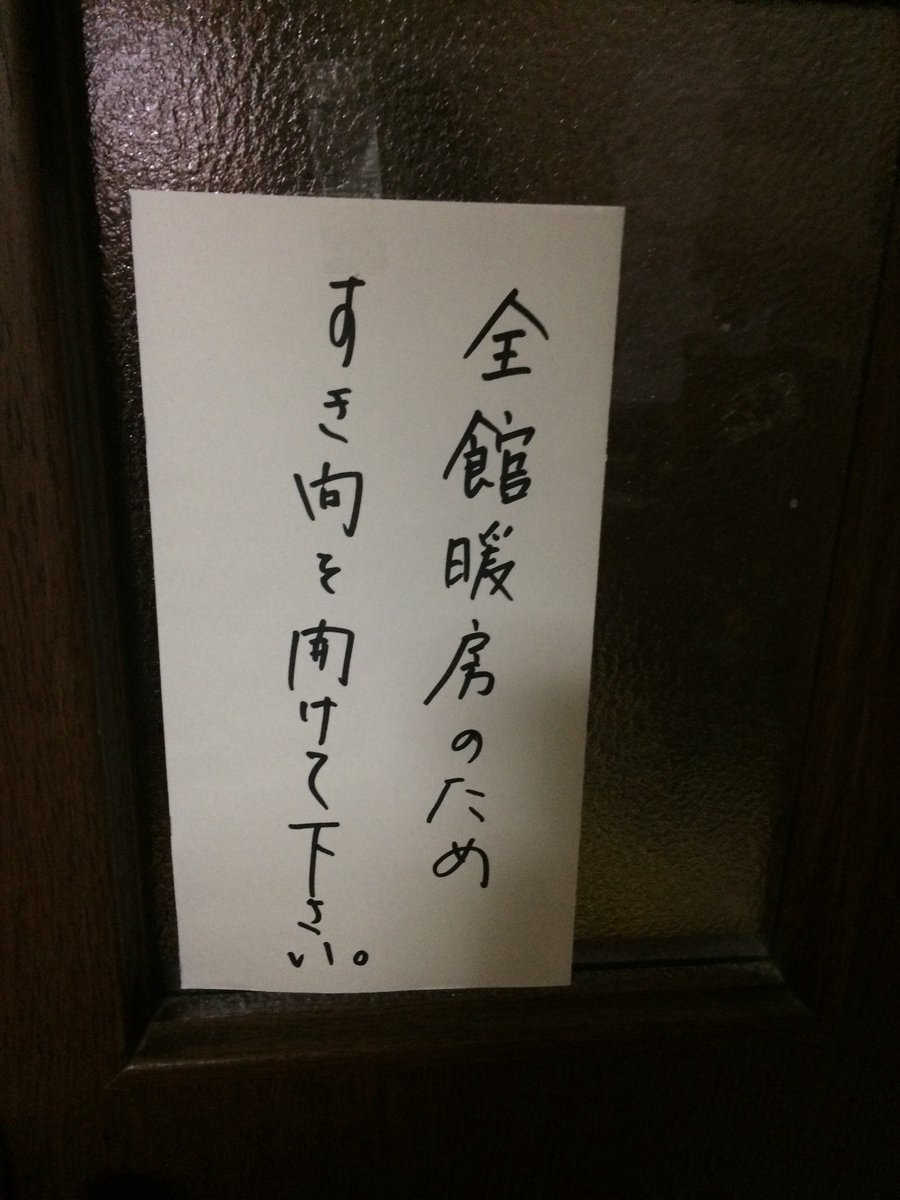 全館暖房のため
すき向を開けて下さい。